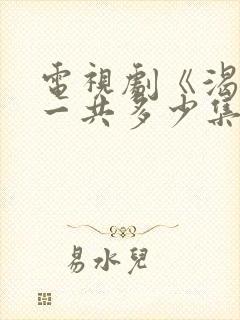 電視劇《渴
一共多少集
易水兒